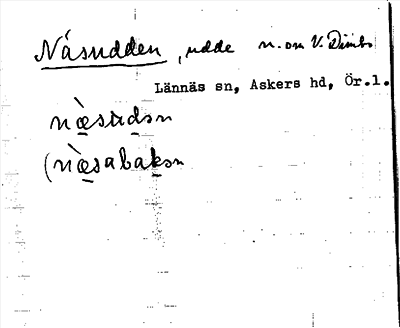 Näsudden, udde n. om V. Dimbo
Lännäs sn, Askers hd, Ör.l.
næ̀sudən
(næ̀sabakən